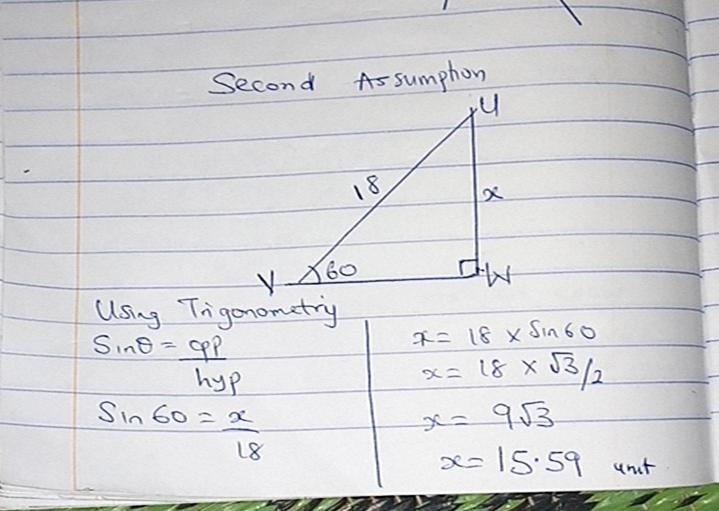 Second Assumption
U
18
x
60
V
W
Using Trigonometry
Sinθ = opp
hyp
Sin 60 = x
18
x = 18 x Sin 60
x = 18 x √3/2
x = 9√3
x = 15.59 unit